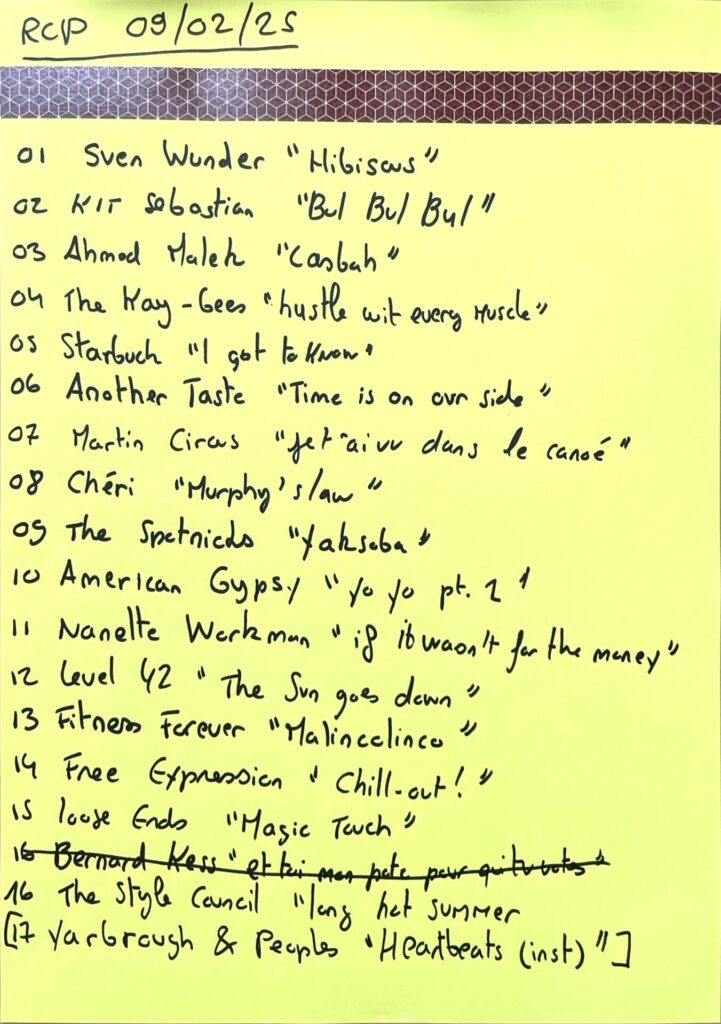 RCP 09/02/25
01 Sven Wunder "Hibiscus"
02 KIT Sebastian "Bul Bul Bul"
03 Ahmed Malek "Casbah"
04 The Kay-Gees "hustle wit every Muscle"
05 Starbuck "I got to know"
06 Another Taste "Time is on our side"
07 Martin Circus "Je t'ai vu dans le canoé"
08 Chéri "Murphy's law"
09 The Spotnicks "Yaksoba"
10 American Gypsy "Yo Yo pt. 2"
11 Nanette Workman "if it wasn't for the money"
12 Level 42 "The Sun goes down"
13 Fitness Forever "Malincolinco"
14 Free Expression "Chill-out!"
15 loose Ends "Magic Touch"
16 Bernard Kess "et toi mon pote pour qui tu votes"
16 The Style Council "long hot summer
[17 Yarbrough & Peoples "Heartbeats (inst)"]